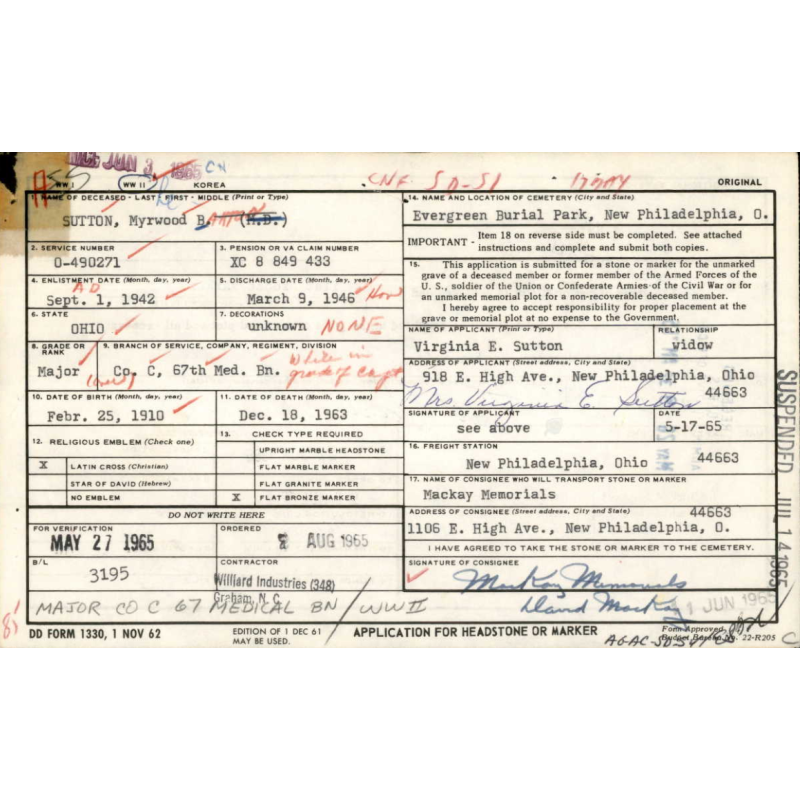 JUN 3 1965 CN
WW I WW II KOREA CNF SD-51 17 MAY ORIGINAL
1. NAME OF DECEASED - LAST - FIRST - MIDDLE (Print or Type)
SUTTON, Myrwood B. (M.D.)
2. SERVICE NUMBER
O-490271
3. PENSION OR VA CLAIM NUMBER
XC 8 849 433
4. ENLISTMENT DATE (Month, day, year)
AD
Sept. 1, 1942
5. DISCHARGE DATE (Month, day, year)
March 9, 1946 Hon
6. STATE
OHIO
7. DECORATIONS
unknown NONE
8. GRADE OR RANK
Major
9. BRANCH OF SERVICE, COMPANY, REGIMENT, DIVISION
Co. C, 67th Med. Bn.
While in
grade of capt
10. DATE OF BIRTH (Month, day, year)
Febr. 25, 1910
11. DATE OF DEATH (Month, day, year)
Dec. 18, 1963
12. RELIGIOUS EMBLEM (Check one)
X LATIN CROSS (Christian)
STAR OF DAVID (Hebrew)
NO EMBLEM
13. CHECK TYPE REQUIRED
UPRIGHT MARBLE HEADSTONE
FLAT MARBLE MARKER
FLAT GRANITE MARKER
X FLAT BRONZE MARKER
DO NOT WRITE HERE
FOR VERIFICATION
MAY 27 1965
ORDERED
2 AUG 1965
B/L
3195
CONTRACTOR
Williard Industries (348)
Graham, N. C.
MAJOR CO C 67 MEDICAL BN / WW II
14. NAME AND LOCATION OF CEMETERY (City and State)
Evergreen Burial Park, New Philadelphia, O.
IMPORTANT - Item 18 on reverse side must be completed. See attached
instructions and complete and submit both copies.
15. This application is submitted for a stone or marker for the unmarked
grave of a deceased member or former member of the Armed Forces of the
U. S., soldier of the Union or Confederate Armies of the Civil War or for
an unmarked memorial plot for a non-recoverable deceased member.
I hereby agree to accept responsibility for proper placement at the
grave or memorial plot at no expense to the Government.
NAME OF APPLICANT (Print or Type)
Virginia E. Sutton
RELATIONSHIP
widow
ADDRESS OF APPLICANT (Street address, City and State)
918 E. High Ave., New Philadelphia, Ohio
44663
Mrs. Virginia E. Sutton
SIGNATURE OF APPLICANT
see above
DATE
5-17-65
16. FREIGHT STATION
New Philadelphia, Ohio 44663
17. NAME OF CONSIGNEE WHO WILL TRANSPORT STONE OR MARKER
Mackay Memorials
ADDRESS OF CONSIGNEE (Street address, City and State) 44663
1106 E. High Ave., New Philadelphia, O.
I HAVE AGREED TO TAKE THE STONE OR MARKER TO THE CEMETERY.
SIGNATURE OF CONSIGNEE
MacKay Memorials
David MacKay
1 JUN 1965
SUSPENDED JUL 14 1965
DD FORM 1330, 1 NOV 62
EDITION OF 1 DEC 61
MAY BE USED.
APPLICATION FOR HEADSTONE OR MARKER
Form Approved
Budget Bureau No. 22-R205